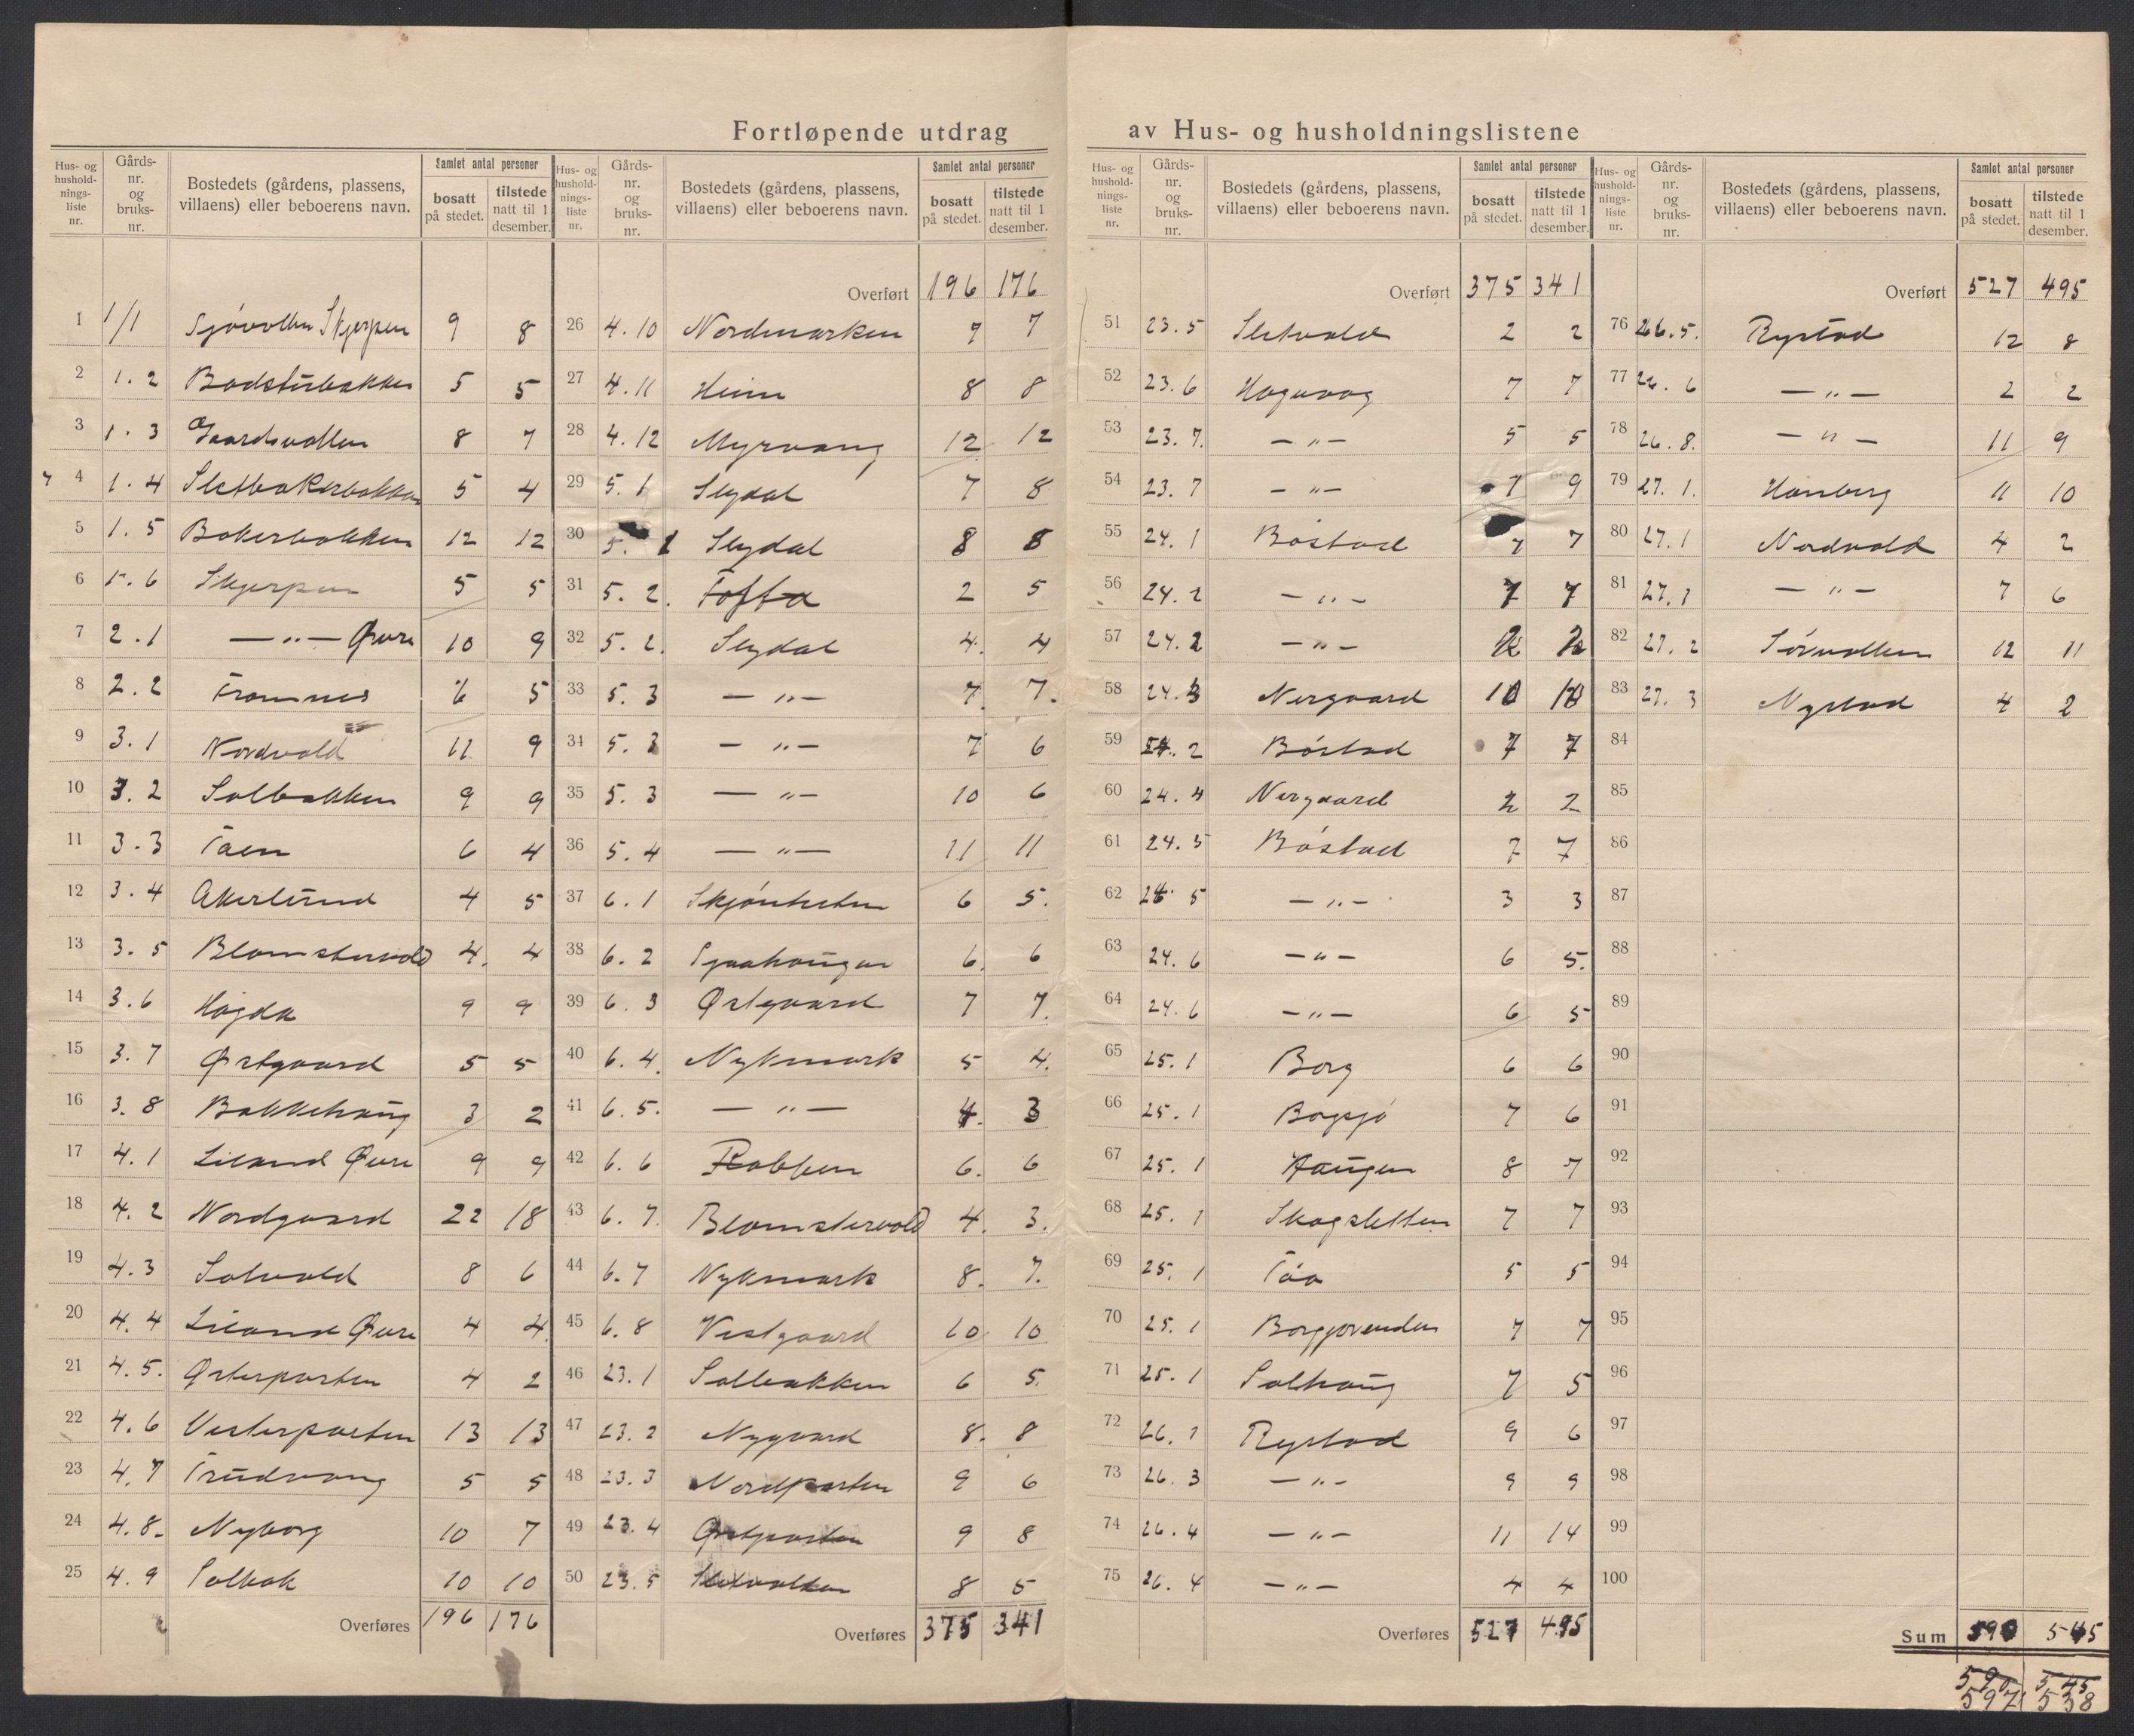 Fortløpende utdrag av Hus- og husholdningslistene
Hus- og husholdningsliste nr. | Gårds-nr. og bruks-nr. | Bostedets (gårdens, plassens, villaens) eller beboerens navn. | Samlet antal personer bosatt på stedet. | tilstede natt til 1 desember.
1 1/1 Sjøvollen Skjerpen 9 8
2 1.2 Badsturbakken 5 5
3 1.3 Gaardsvollen 8 7
4 1.4 Sletbakerbakken 5 4
5 1.5 Bakerbakken 12 12
6 1.6 Skjerpen 5 5
7 2.1 —"— Øvre 10 9
8 2.2 Framnes 6 5
9 3.1 Nordvold 11 9
10 3.2 Solbakken 9 9
11 3.3 Taen 6 4
12 3.4 Akerlund 4 5
13 3.5 Blomstervold 4 4
14 3.6 Høgda 9 9
15 3.7 Østgaard 5 5
16 3.8 Bakkehaug 3 2
17 4.1 Liland Øvre 9 9
18 4.2 Nordgaard 22 18
19 4.3 Solvold 8 6
20 4.4 Liland Øvre 4 4
21 4.5. Østerparten 4 2
22 4.6 Vesterparten 13 13
23 4.7 Trudvang 5 5
24 4.8. Nyborg 10 7
25 4.9 Solbak 10 10
Overføres 196 176
Hus- og husholdningsliste nr. | Gårds-nr. og bruks-nr. | Bostedets (gårdens, plassens, villaens) eller beboerens navn. | Samlet antal personer bosatt på stedet. | tilstede natt til 1 desember.
Overført 196 176
26 4.10 Nordmarken 7 7
27 4.11 Heim 8 8
28 4.12 Myrvang 12 12
29 5.1 Slydal 7 8
30 5.1 Slydal 8 8
31 5.2. Tofta 2 5
32 5.2. Slydal 4. 4
33 5.3 —"— 7. 7.
34 5.3 —"— 7 6
35 5.3 —"— 10 6
36 5.4 —"— 11 11
37 6.1 Skjønheten 6 5.
38 6.2 Sjaahaugen 6. 6
39 6.3 Østgaard 7 7.
40 6.4. Nykmark 5 4.
41 6.5. —"— 4. 3
42 6.6 Rabben 6. 6
43 6.7. Blomstervold 4. 3.
44 6.7 Nykmark 8. 7.
45 6.8 Vestgaard 10 10
46 23.1 Solbakken 6 5.
47 23.2 Nygaard 8. 8
48 23.3 Nordparten 9 6
49 23.4 Østparten 9 8
50 23.5 8 5
Overføres 375 341
Hus- og husholdningsliste nr. | Gårds-nr. og bruks-nr. | Bostedets (gårdens, plassens, villaens) eller beboerens navn. | Samlet antal personer bosatt på stedet. | tilstede natt til 1 desember.
Overført 375 341
51 23.5 Sletvold 2 2
52 23.6 Hagavag 7 7
53 23.7. —"— 5 5
54 23.7 —"— 7 9
55 24.1 Bøstad 7 7
56 24.2 —"— 7 7
57 24.2 —"— 2 2
58 24.3 Nergaard 10 10
59 24.2 Bøstad 7 7
60 24.4 Nergaard 2 2
61 24.5 Bøstad 7 7
62 24.5 —"— 3 3
63 24.6 —"— 6 5.
64 24.6 —"— 6 5
65 25.1 Borg 6 6
66 25.1 Borgsjø 7 6
67 25.1 Haugen 8 7
68 25.1 Skogsletten 7 7
69 25.1 Tåa 5 5
70 25.1 7 7
71 25.1 Solhaug 7 5
72 26.1 Rystad 9 6
73 26.3 —"— 9 9
74 26.4 —"— 11 14
75 26.4 —"— 4 4
Overføres 527 495
Hus- og husholdningsliste nr. | Gårds-nr. og bruks-nr. | Bostedets (gårdens, plassens, villaens) eller beboerens navn. | Samlet antal personer bosatt på stedet. | tilstede natt til 1 desember.
Overført 527 495
76 26.5. Rystad 12 8
77 26.6 —"— 2 2
78 26.8. —"— 11 9
79 27.1. Hanberg 11 10
80 27.1 Nordvold 4 2
81 27.1 —"— 7 6
82 27.2 Sørvollen 12 11
83 27.3 Nystad 4 2
84
85
86
87
88
89
90
91
92
93
94
95
96
97
98
99
100
Sum 590 545
590 545
597 538